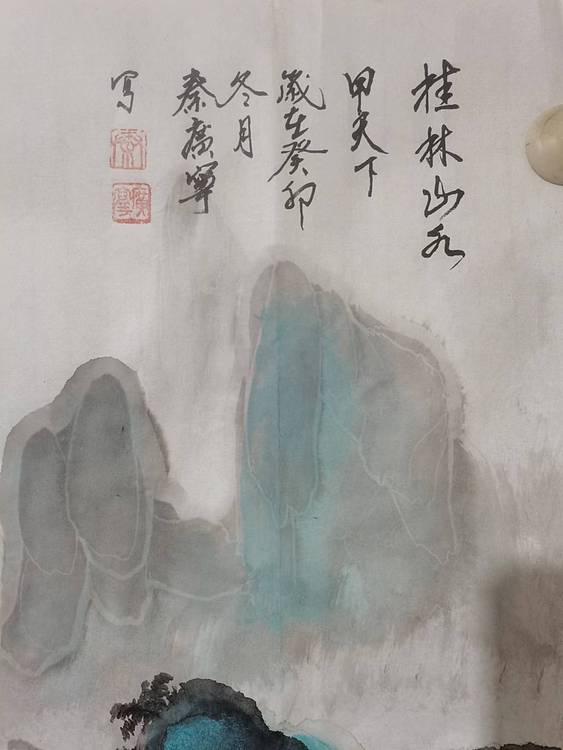 桂林山水
甲天下
歲在癸卯
冬月
秦廣寧
写